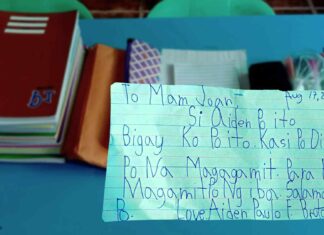 To Mam Joan
Aug 17, 2
Si Aiden Po ito
Bigay Ko Po ito Kasi Po Di
Po Na Magagamit Para
Magamit Po Ng iba. Salama
B. Love Aiden Paulo F.